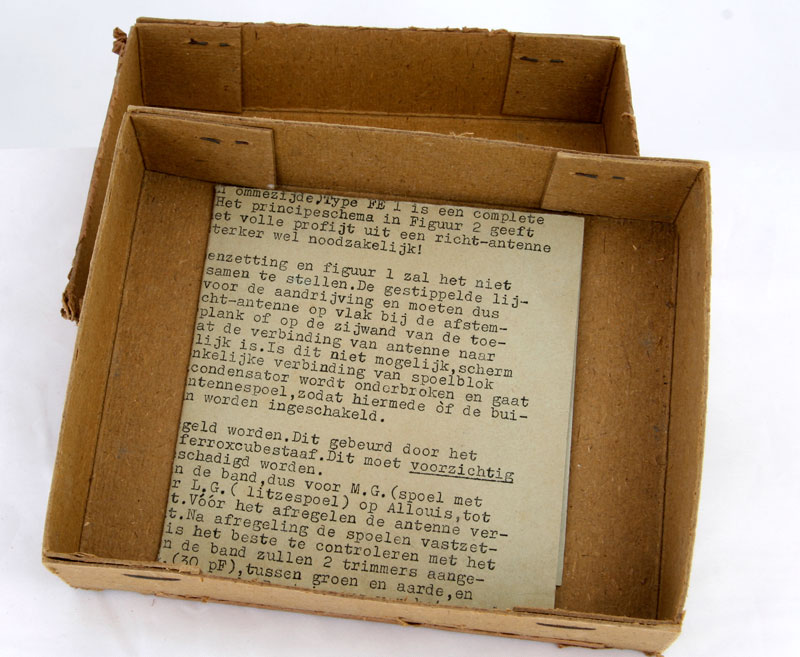 ommezijde,Type FE 1 is een complete
Het principeschema in Figuur 2 geeft
et volle profijt uit een richt-antenne
terker wel noodzakelijk!
enzetting en figuur 1 zal het niet
samen te stellen.De gestippelde lij-
voor de aandrijving en moeten dus
cht-antenne op vlak bij de afstem-
plank of op de zijwand van de toe-
at de verbinding van antenne naar
lijk is.Is dit niet mogelijk,scherm
nkelijke verbinding van spoelblok
condensator wordt onderbroken en gaat
ntennespoel,zodat hiermede òf de bui-
n worden ingeschakeld.
geld worden.Dit gebeurd door het
ferroxcubestaaf.Dit moet voorzichtig
schadigd worden.
n de band,dus voor M.G.(spoel met
r L.G.( litzespoel) op Allouis,tot
t.Vóór het afregelen de antenne ver-
t.Na afregeling de spoelen vastzet-
is het beste te controleren met het
n de band zullen 2 trimmers aange-
.(30 pF),tussen groen en aarde,en